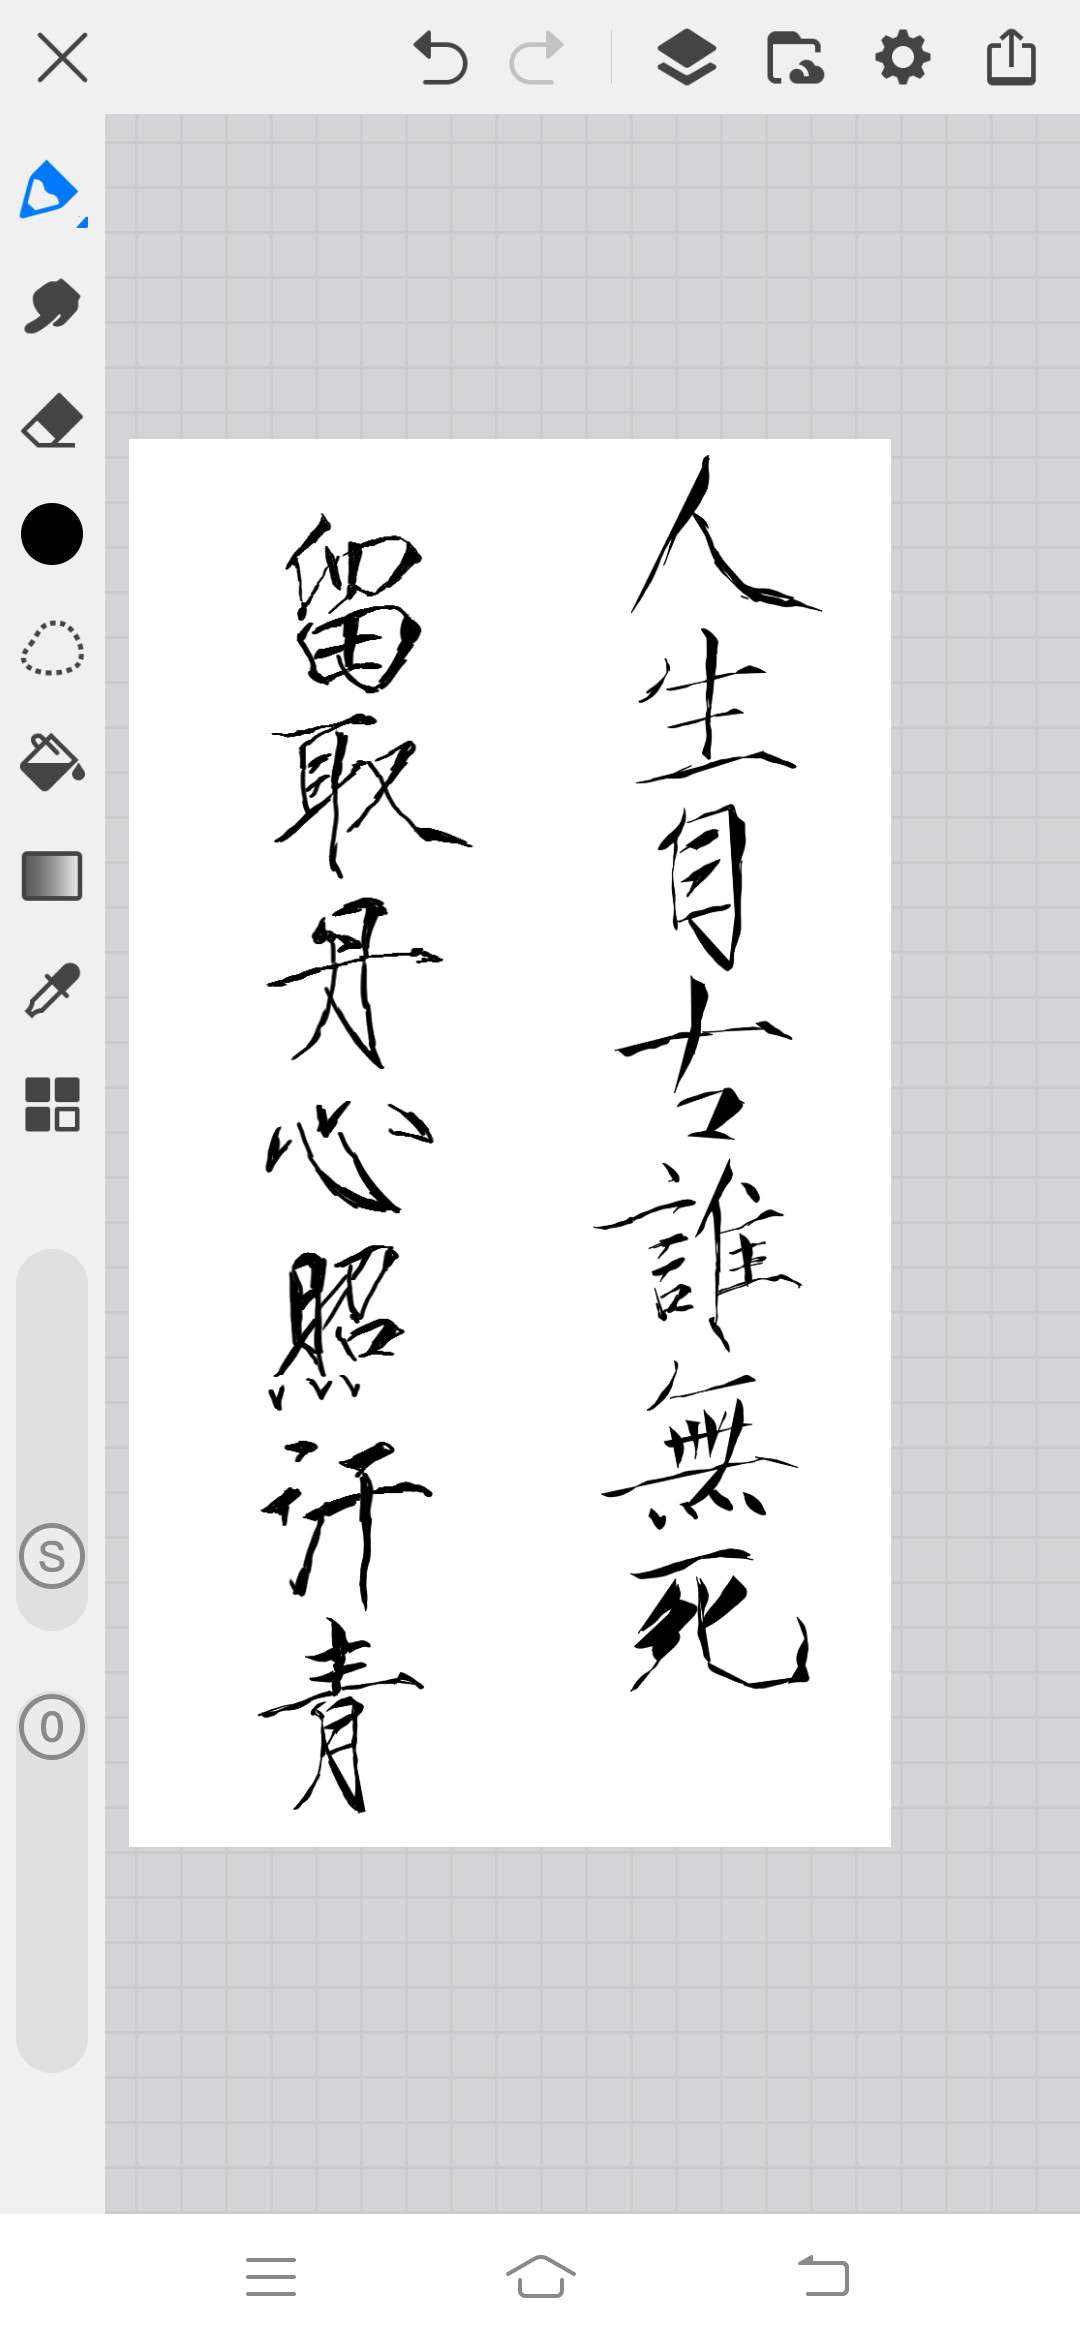 人生自古誰無死
留取丹心照汗青
S
O